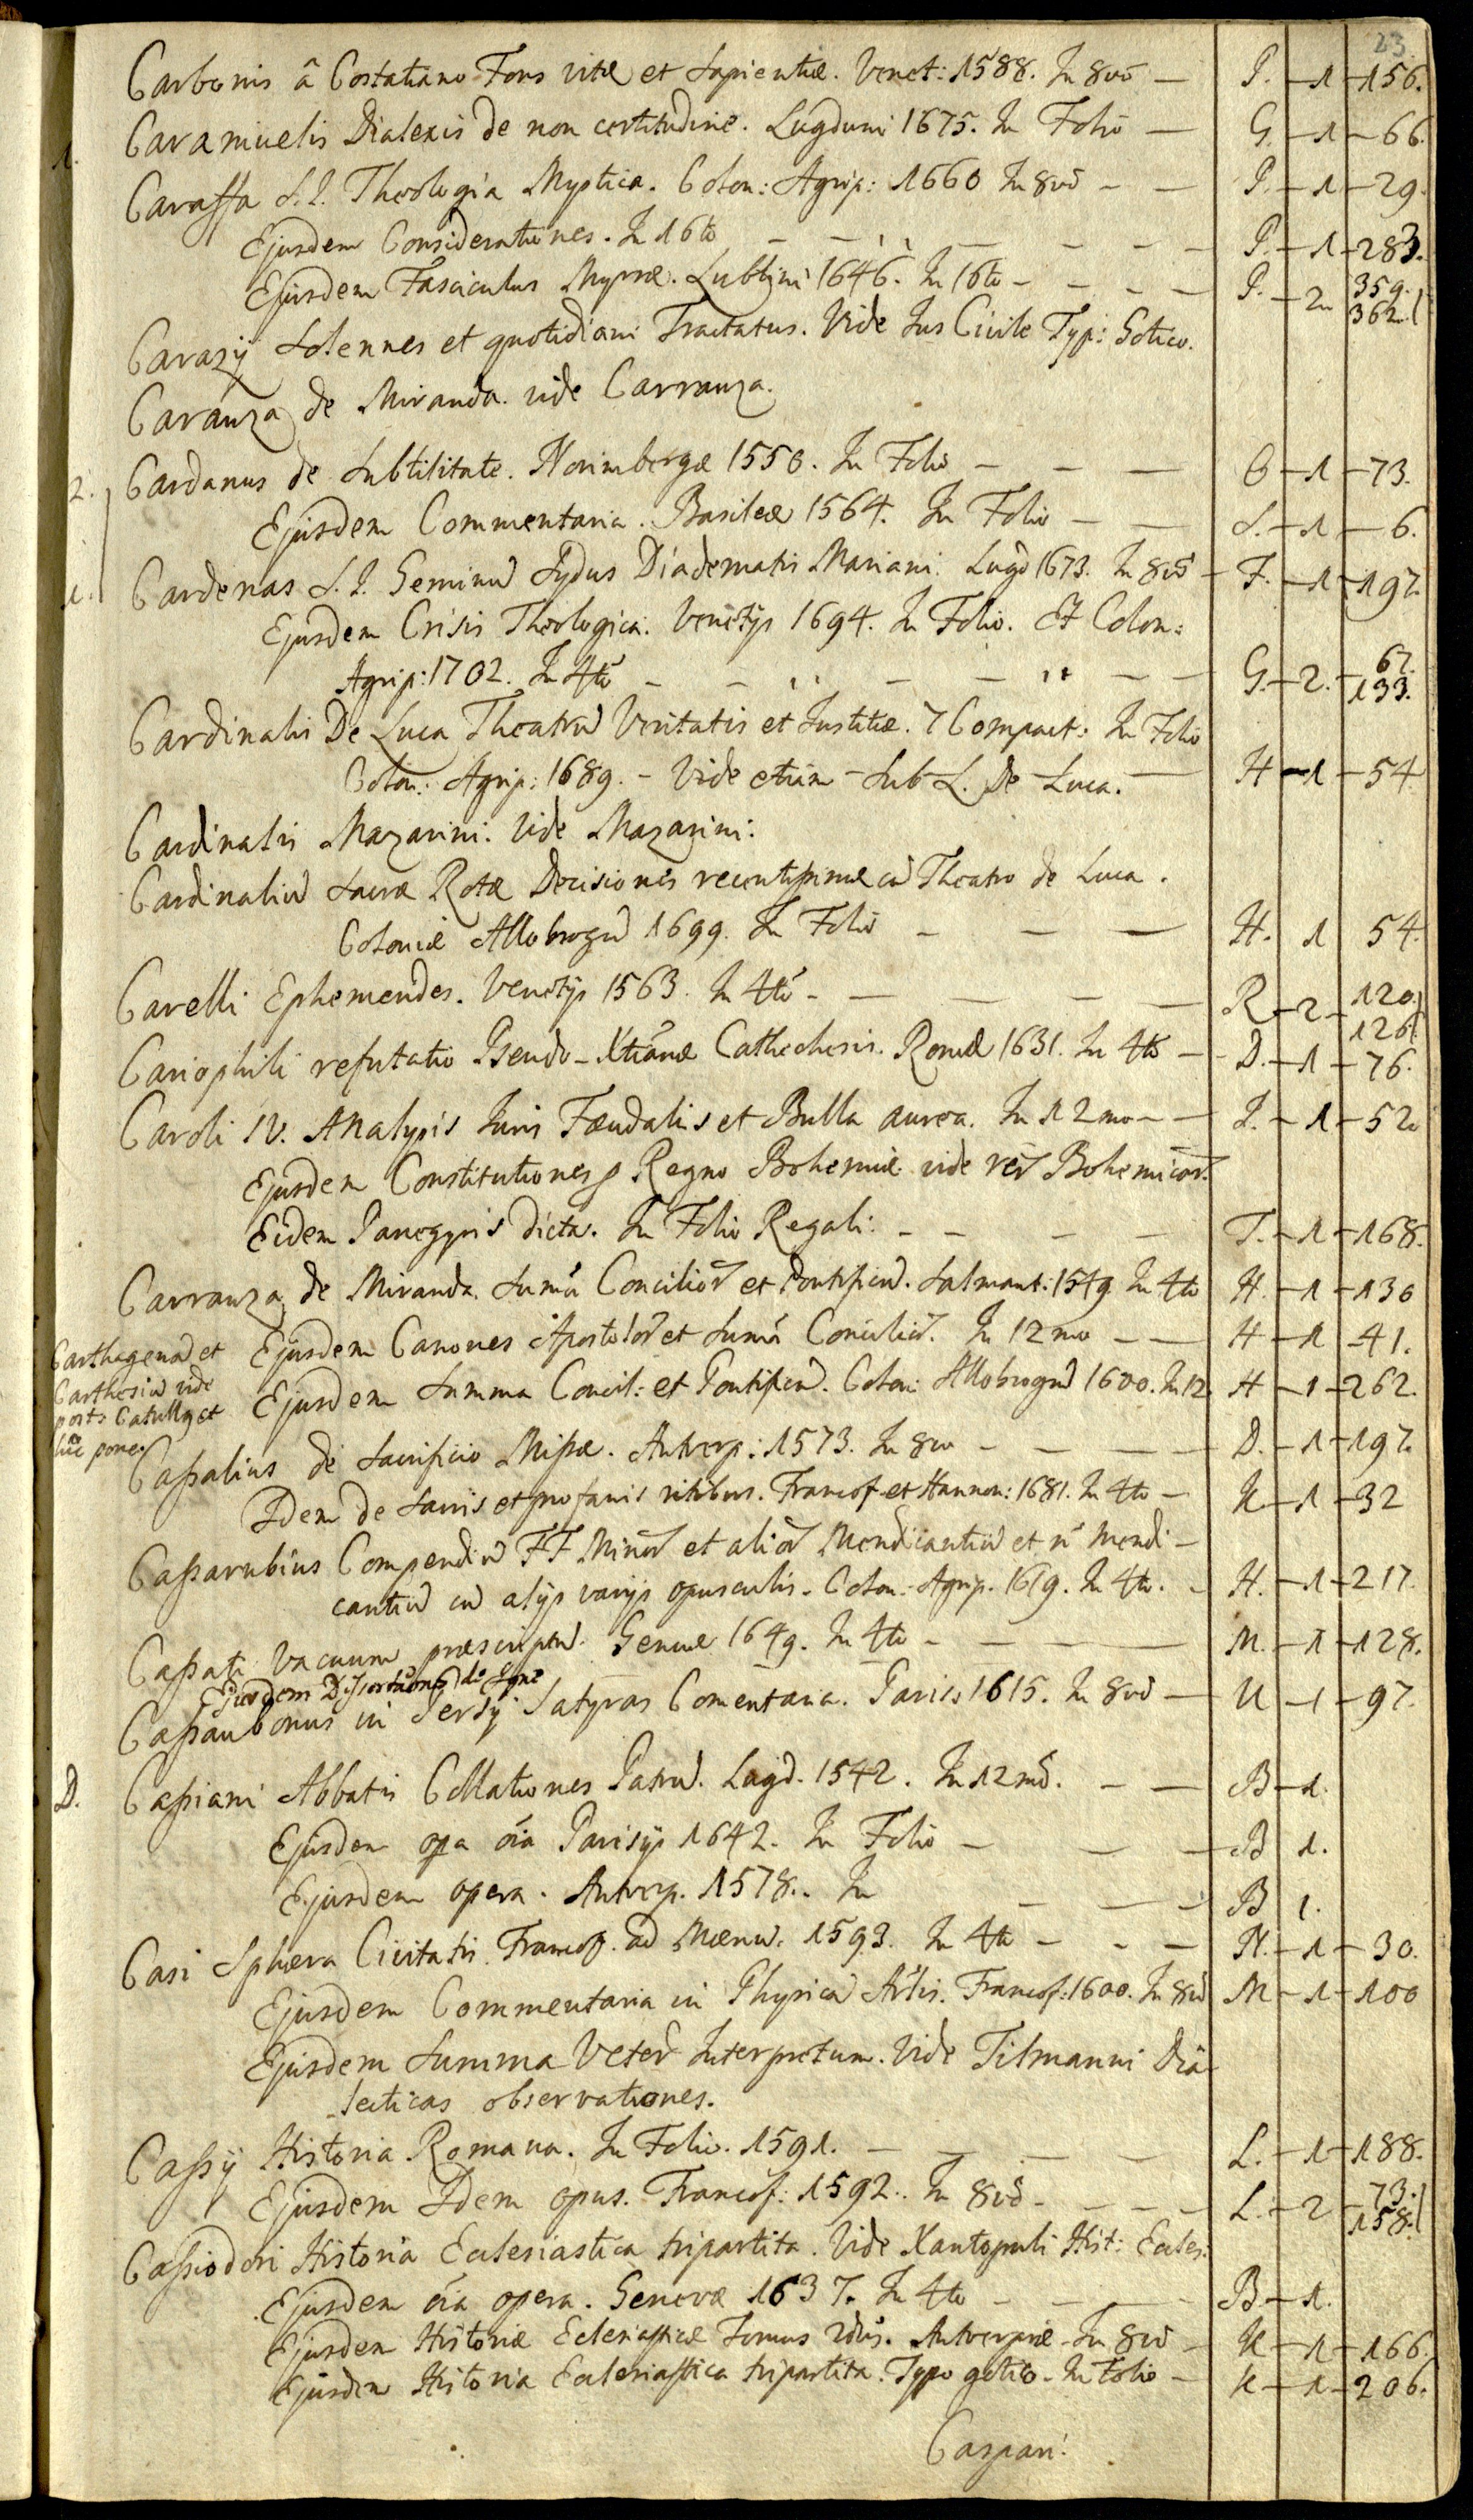 23.
Carbonis â Costatiano Fons vitæ et Sapientiæ. Venet: 1588. In 8vo — P. — 1 — 156.
Caramuelis Dialexis de non certitudine. Lugduni 1675. In Folio — G. — 1 — 66.
1. Caraffa S. I. Theologia Mystica. Colon: Agrip: 1660 In 8vo — — P. — 1 — 29.
Ejusdem Considerationes. In 16to — — — — — P. — 1 — 283.
Ejusdem Fasciculus Myrræ. Lublini 1646. In 16to — — — — P. — 2 359. 362.
Carazij Solennes et quotidiani Tractatus. Vide Jus Civile Typ: Gotico.
Caranza de Miranda. vide Carranza.
2. Cardanus de Subtilitate. Norimbergæ 1550. In Folio — — — O — 1 — 73.
Ejusdem Commentaria. Basileæ 1564. In Folio — — S. — 1 — 6.
1. Cardenas S. I. Geminū Sydus Diadematis Mariani. Lugd 1673. In 8vo — F. — 1 — 197.
Ejusdem Crisis Theologica. Venetijs 1694. In Folio. Et Colon:
Agrip: 1702. In 4to — — — — — — G. — 2. — 67. 133.
Cardinalis De Luca Theatrū Veritatis et Justitiæ. 7 Compact: In Folio
Colon: Agrip: 1689. — Vide etiam Sub L. De Luca. — H — 1 — 54
Cardinalis Mazarini. Vide Mazarini.
Cardinaliū Sacræ Rotæ Decisiones recentissimæ cū Theatro de Luca.
Coloniæ Allobrogū 1699. In Folio — — — H. 1 54.
Carelli Ephemerides. Venetijs 1563. In 4to — — — — — R — 2 — 120. 126.
Cariophili refutatio Pseudo-Xtianæ Cathechesis. Romæ 1631. In 4to — D. — 1 — 76.
Caroli IV. Analysis Juris Fæudalis et Bulla aurea. In 12mo — — I. — 1 — 52
Ejusdem Constitutiones p Regno Bohemiæ vide rerū Bohemicar.
Eidem Panegyris dicta. In Folio Regali. — — — — T. — 1 — 168.
Carranza de Miranda Summa Concilior et Pontificū. Salmant: 1549 In 4to H. — 1 — 130
Carthagena et
Carthesiū vide
post Catullq et
huc pone.
Ejusdem Canones Apostolor et Summa Concilior. In 12mo — — H — 1 — 41.
Ejusdem Summa Concil: et Pontificū. Colon: Allobrogū 1600. In 12 H — 1 — 262.
Cassalius de Sacrificio Missæ. Antverp: 1573. In 8vo — — — — D. — 1 — 197.
Idem de sacris et profanis ritibus. Francof. et Hannon: 1681. In 4to — K — 1 — 32
Cassarubius Compendiū FF Minor et alior Mendicantiū et n Mendi-
cantiū cū alijs varijs opusculis. Colon: Agrip. 1619. In 4to. — H. — 1 — 217.
Cassati Vacuum præscriptū. Genuæ 1649. In 4to — — — — M. — 1 — 128.
Ejusdem Dissertationes de Igne
Cassaubonus in Persij Satyras Comentaria. Parisis 1615. In 8vo — U — 1 — 97.
D. Cassiani Abbatis Collationes Patrū. Lugd. 1542. In 12mo. — — B — 1.
Ejusdem opa oia Parisijs 1642. In Folio — — — B 1.
Ejusdem opera. Antverp. 1578. In — — — B 1.
Casi Sphæra Civitatis. Francof. ad Mænū. 1593. In 4to — — — N. — 1 — 30.
Ejusdem Commentaria in Physicā Artlis. Francof: 1600. In 8vo M — 1 — 100
Ejusdem Summa Veterū Interpretum. Vide Titmanni Dia-
lecticas observationes.
Cassij Historia Romana. In Folio. 1591. — — — — L. — 1 — 188.
Ejusdem Idem opus. Francof: 1592. In 8vo — — — — L. — 2 — 73. 158.
Cassiodori Historia Eclesiastica tripartita. Vide Xantopuli Hist: Ecles:
Ejusdem oia opera. Genevæ 1637. In 4to — — — — B — 1.
Ejusdem Historiæ Eclesiasticæ Tomus 2dus. Antverpiæ. In 8vo — K — 1 — 166.
Ejusdem Historia Eclesiastica tripartita. Typo gotico. In Folio — K — 1 — 206.
Caspari.